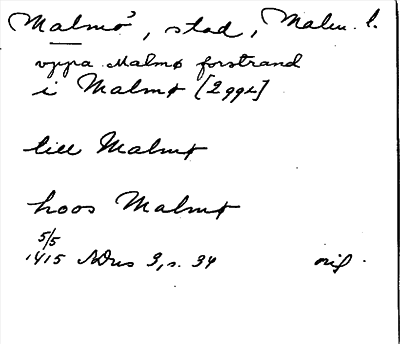 Malmö, stad, Malm. l.
vppa Malmø forstrand
i Malmø [2 ggr]
till Malmø
hoos Malmø
5/5
1415 NDns 3, s. 34 orig.